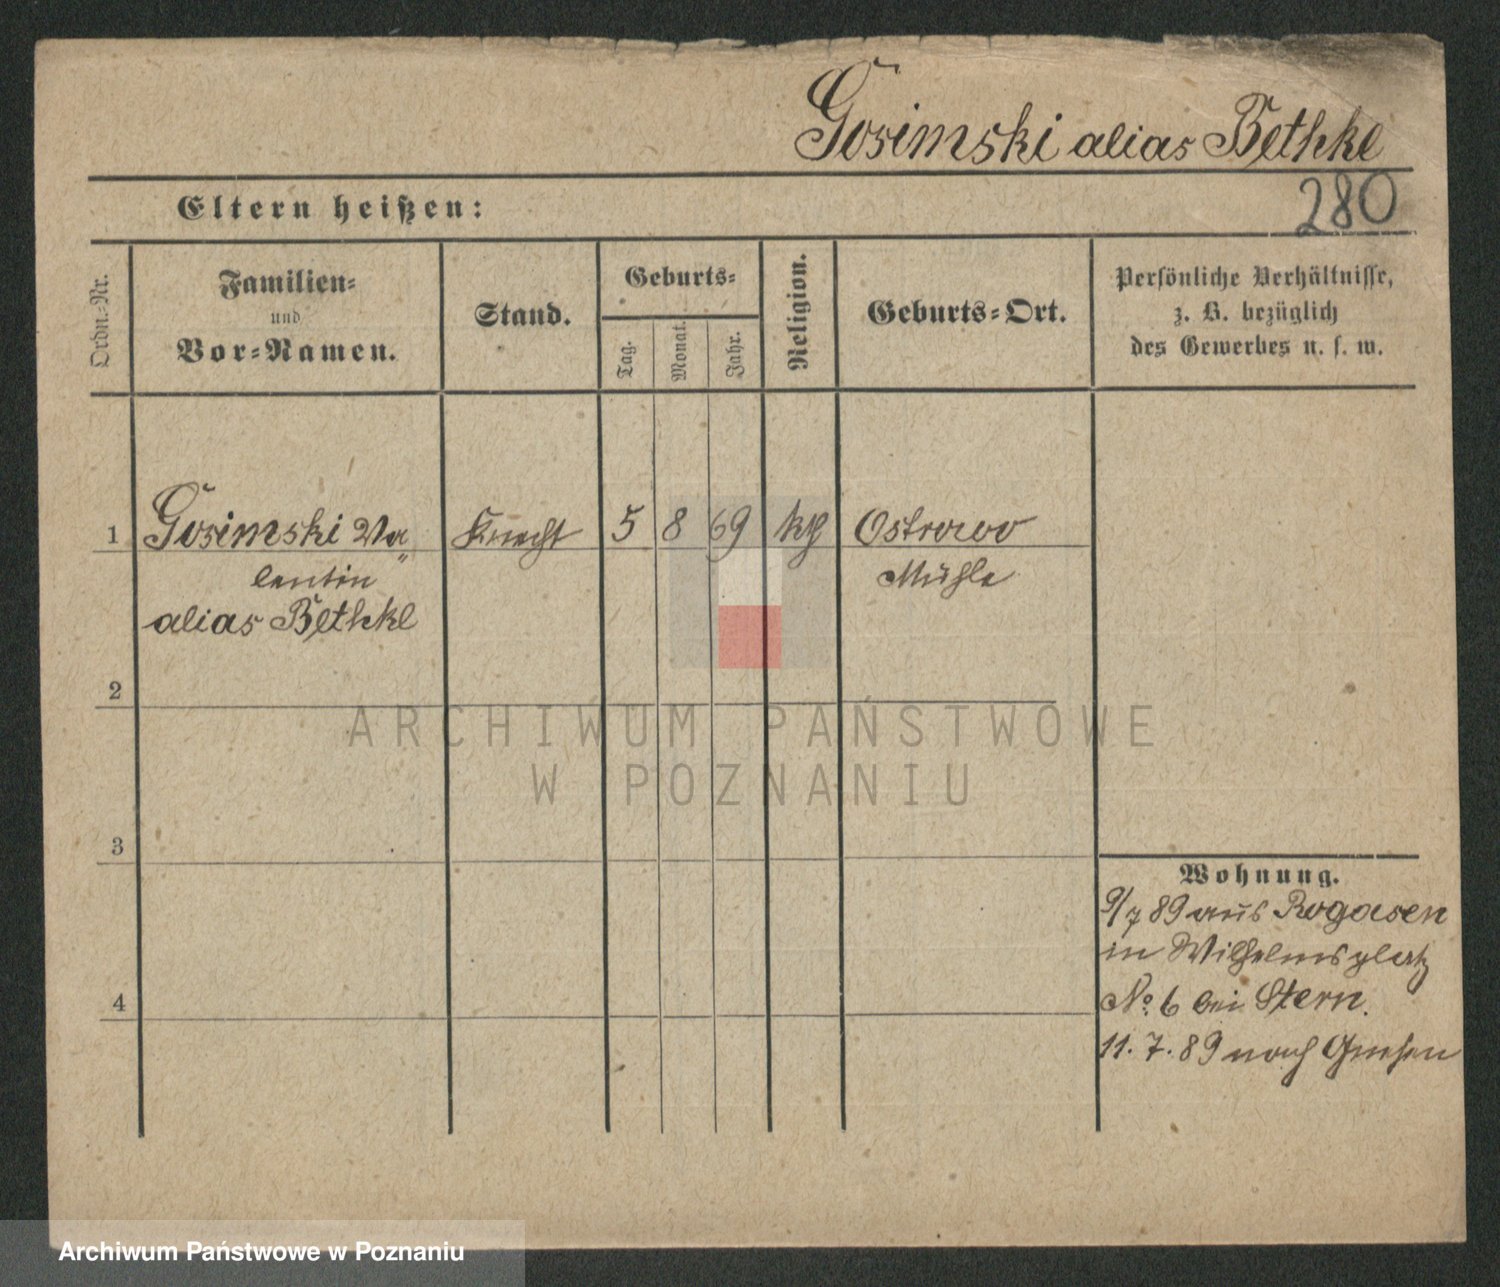 Gosimski alias Bethke
Eltern heißen:
280
Ordn.-Nr.
Familien-
und
Vor-Namen.
Stand.
Geburts-
Tag.
Monat.
Jahr.
Religion.
Geburts-Ort.
Persönliche Verhältnisse,
z. B. bezüglich
des Gewerbes u. s. w.
1 Gosimski Va- Knecht 5 8 69 kth Ostrowo
lentin Mühle
alias Bethke
2
3
4
Wohnung.
9/7 89 aus Rogasen
in Wilhelmsplatz
No. 6 bei Stern.
11. 7. 89 nach Gnesen
ARCHIWUM PAŃSTWOWE
W POZNANIU
Archiwum Państwowe w Poznaniu